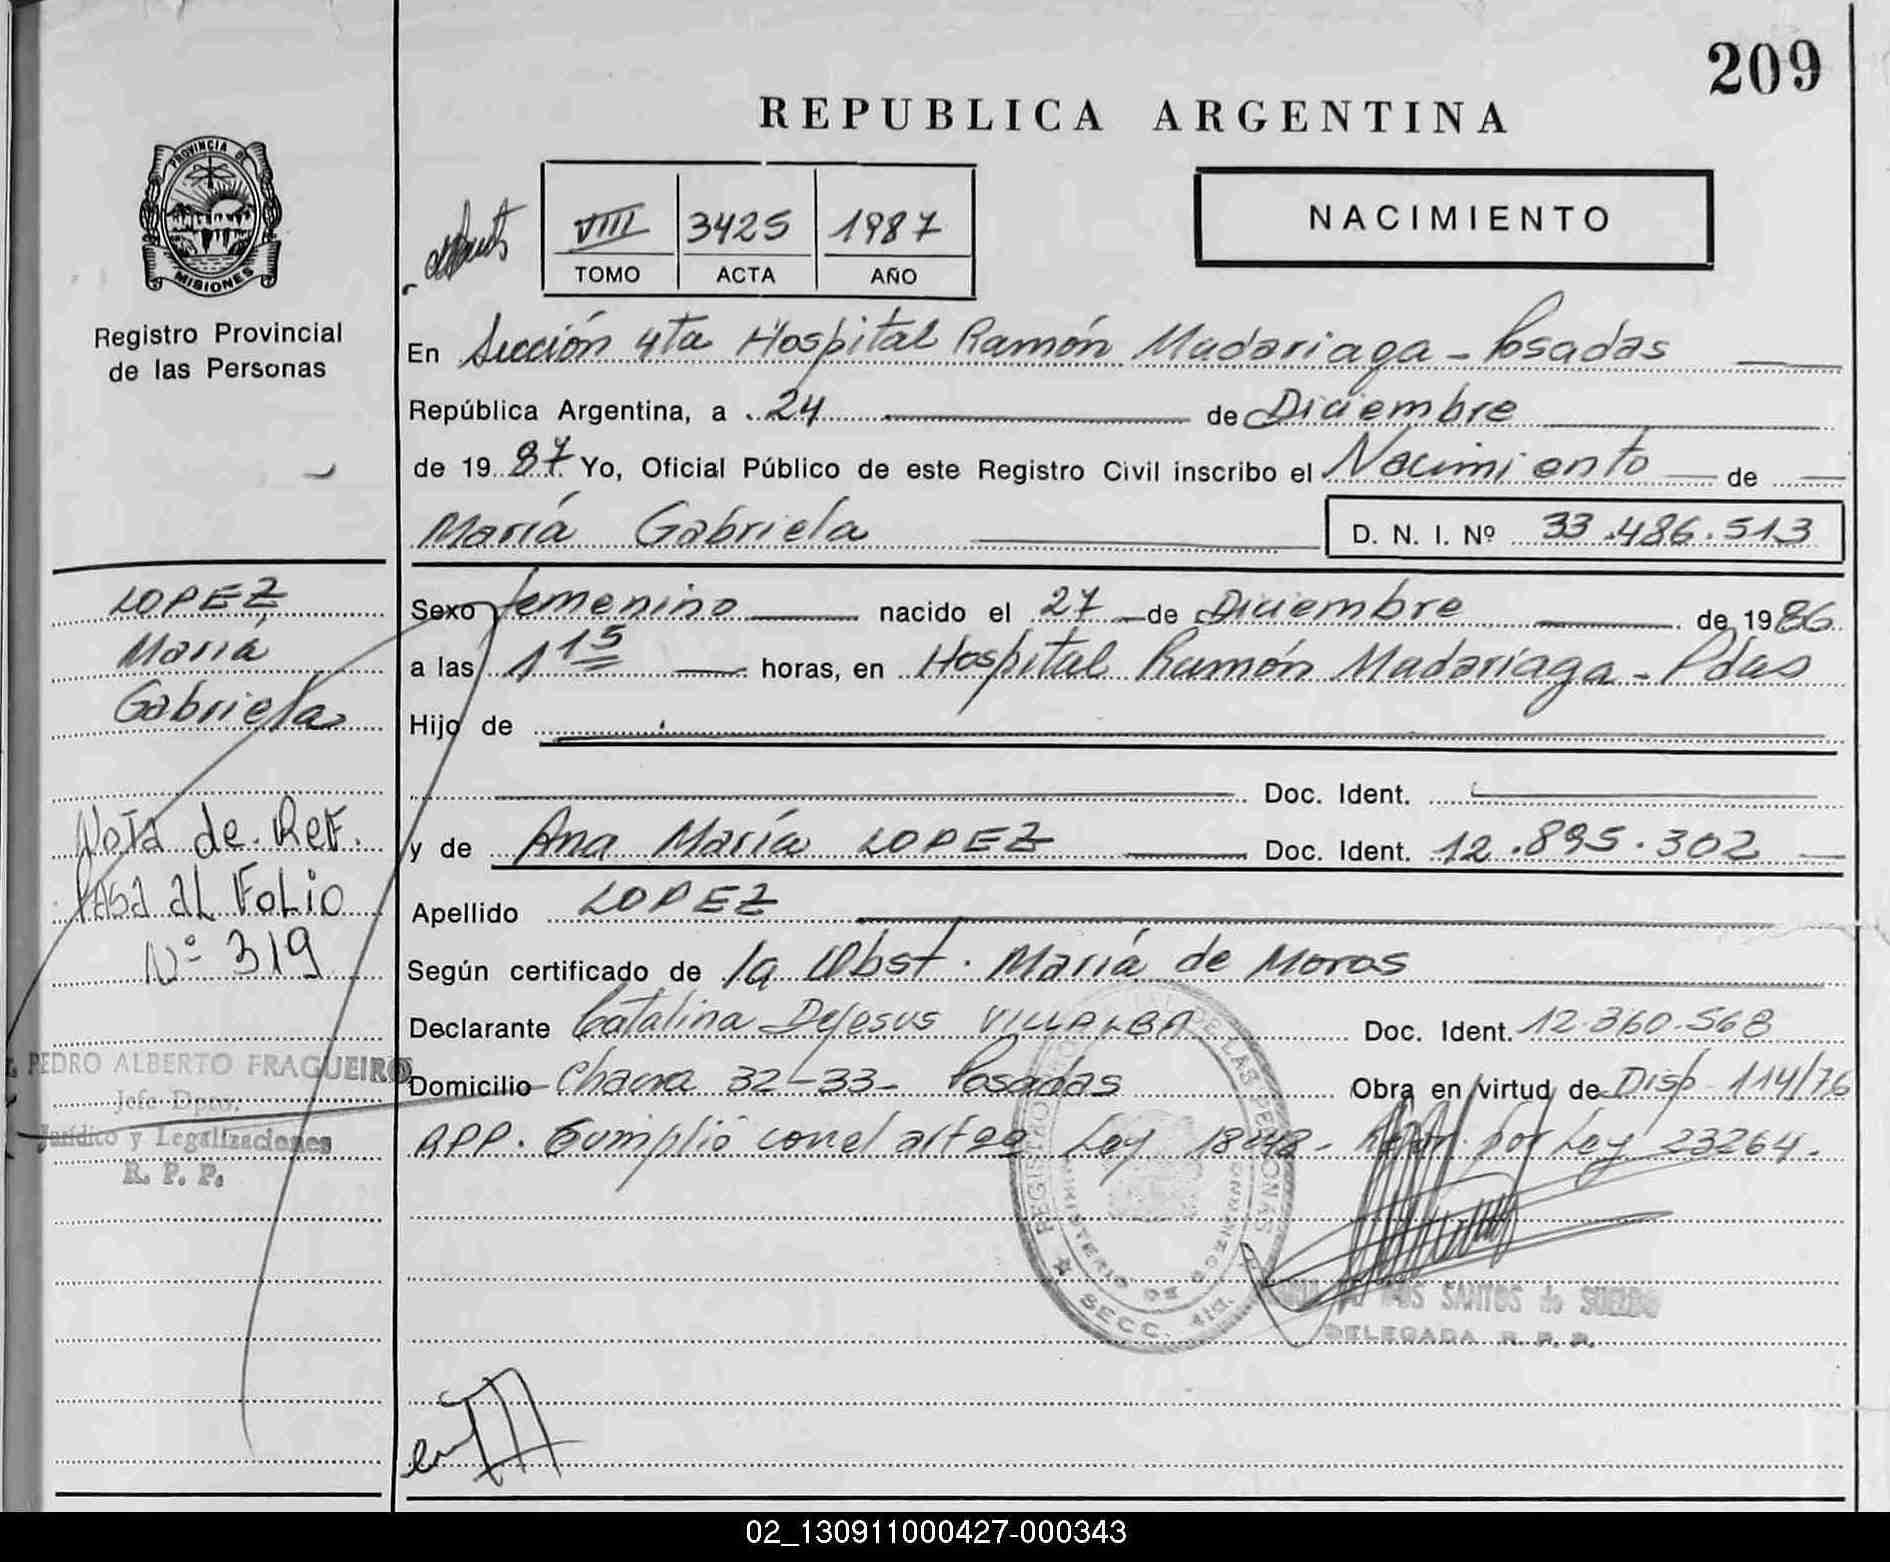 209
REPUBLICA ARGENTINA
PROVINCIA DE
MISIONES
Registro Provincial
de las Personas
VIII 3425 1987
TOMO ACTA AÑO
NACIMIENTO
En Sección 4ta Hospital Ramón Madariaga - Posadas
República Argentina, a 24 de Diciembre
de 1987 Yo, Oficial Público de este Registro Civil inscribo el Nacimiento de
María Gabriela D. N. I. Nº 33.486.513
LOPEZ
María
Gabriela
Nota de Ref.
Pasa al Folio
Nº 319
PEDRO ALBERTO FRAGUEIRO
Jefe Dpto.
Jurídico y Legalizaciones
R. P. P.
Sexo femenino nacido el 27 de Diciembre de 1986
a las 1 15 horas, en Hospital Ramón Madariaga - Pdas
Hijo de
Doc. Ident.
y de Ana María LOPEZ Doc. Ident. 12.895.302
Apellido LOPEZ
Según certificado de la Obst. María de Moros
Declarante Catalina Dejesus VILLALBA Doc. Ident. 12.360.568
Domicilio Chacra 32-33- Posadas Obra en virtud de Disp 114/76
RPP. Cumplió con el art Ley por Ley 23264.
REGISTRO DE LAS PERSONAS
MINISTERIO DE GOBIERNO
SECC. 4ta.
SANTOS de SUELDO
DELEGADA R. P. P.
02_130911000427-000343